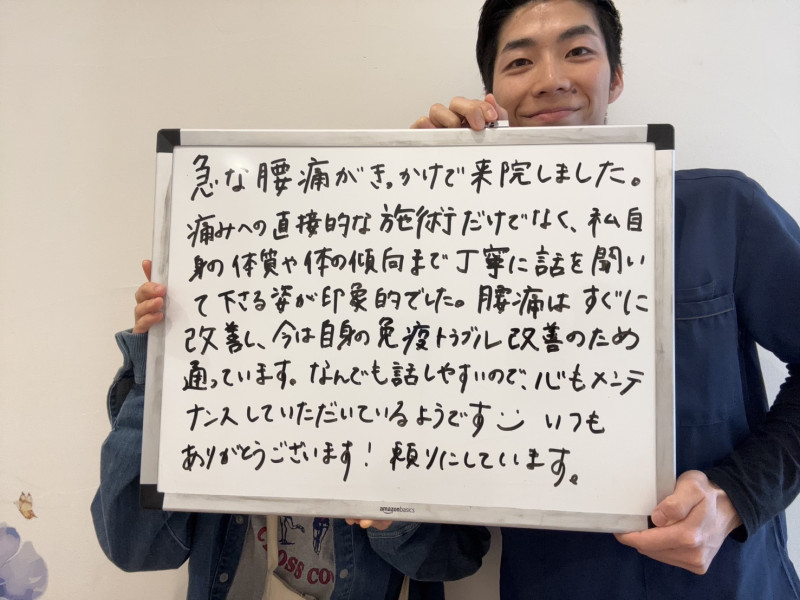 急な腰痛がきっかけで来院しました。
痛みへの直接的な施術だけでなく、私自
身の体質や体の傾向まで丁寧に話を聞い
て下さる姿が印象的でした。腰痛はすぐに
改善し、今は自身の免疫トラブル改善のため
通っています。なんでも話しやすいので、心もメンテ
ナンスしていただいているようです いつも
ありがとうございます！頼りにしています。
amazonbasics
CROSS COU